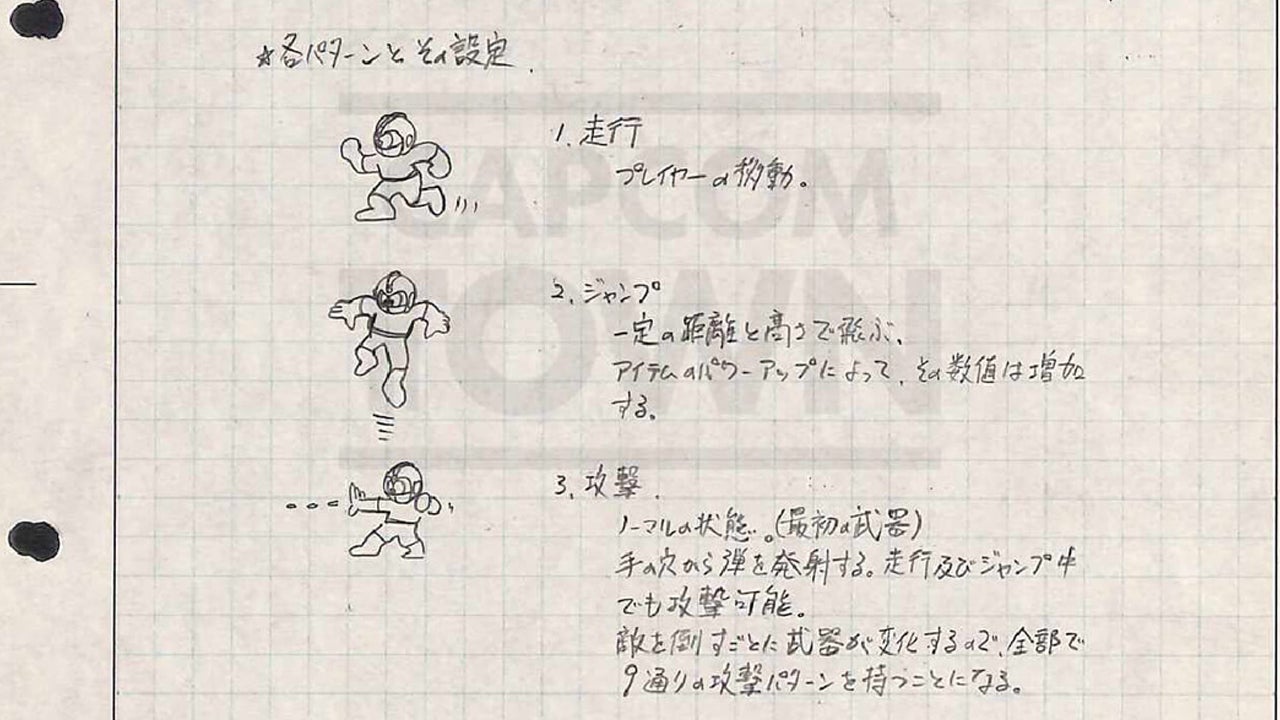 ☆各パターンとその設定.
CAPCOM
TOWN
1. 走行
プレイヤーの移動。
2. ジャンプ
一定の距離と高さで飛ぶ、
アイテムのパワーアップによって、その数値は増加
する。
3. 攻撃.
ノーマルの状態。(最初の武器)
手の穴から弾を発射する。走行及びジャンプ中
でも攻撃可能。
敵を倒すごとに武器が変化するので、全部で
9通りの攻撃パターンを持つことになる。